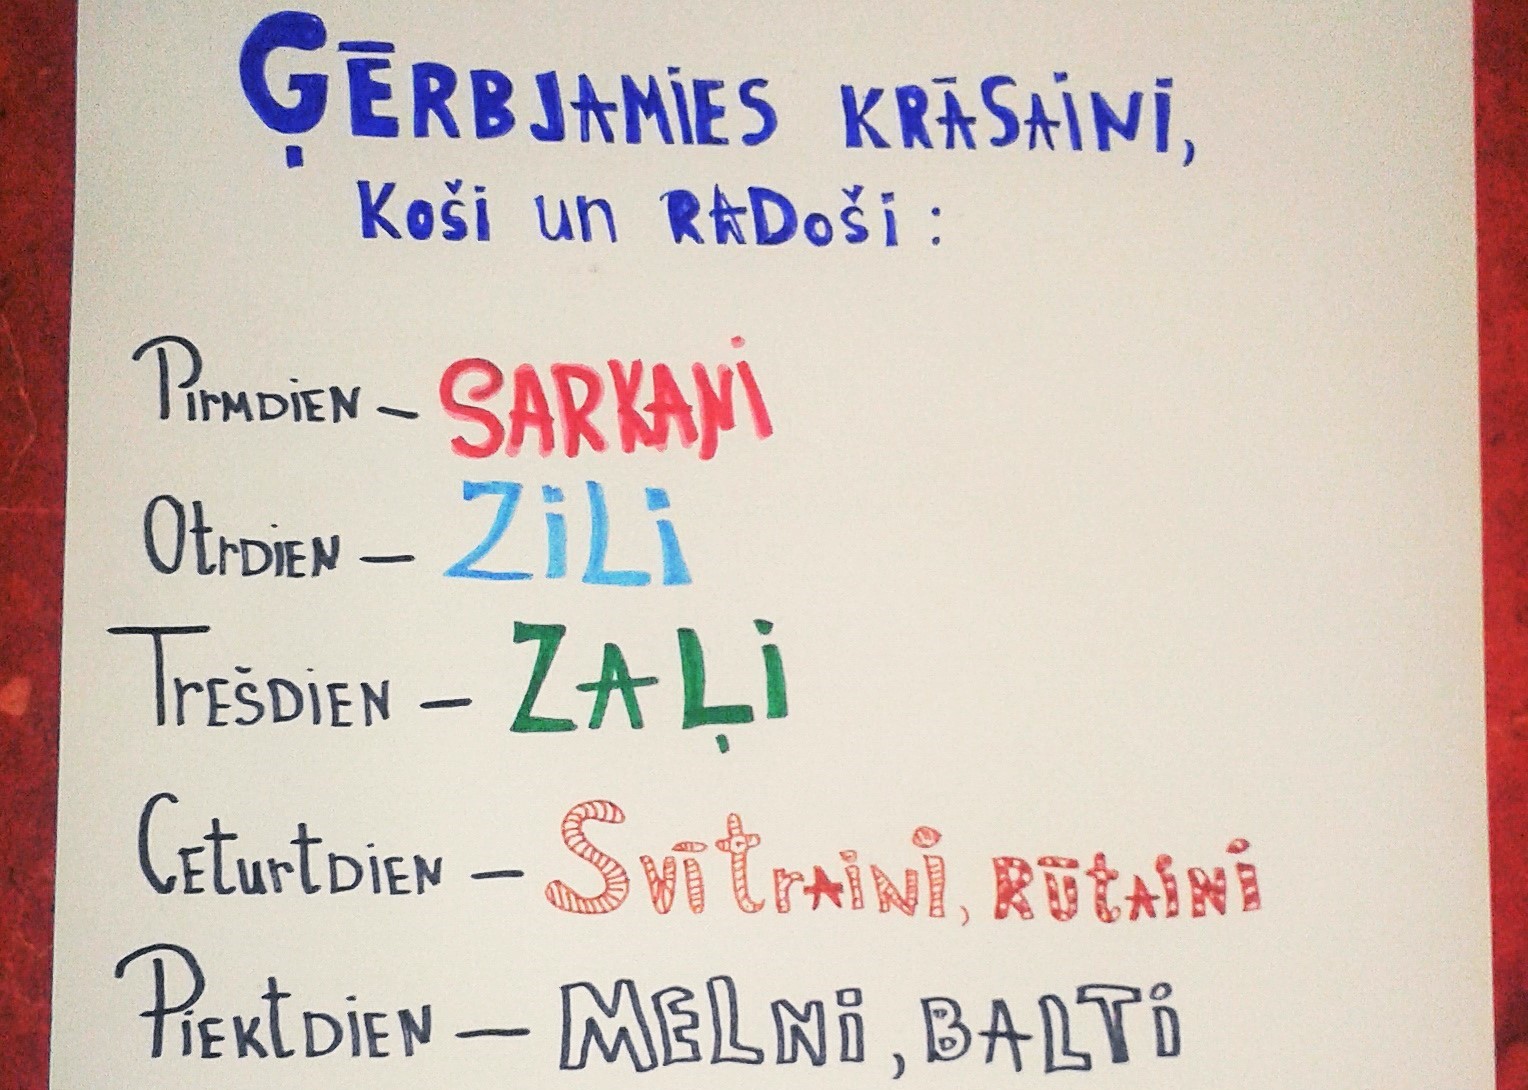 ĢĒRBJAMIES KRĀSAINI,
Koši un RADoši :
PirmDiEN - SARKAŅI
OtrDiEN - ZiLi
TrEŠDiEN - ZAĻi
CEturtDiEN - SvītrAiNi, RŪtAiNi
PiEKtDiEN - MELNi, BALTi